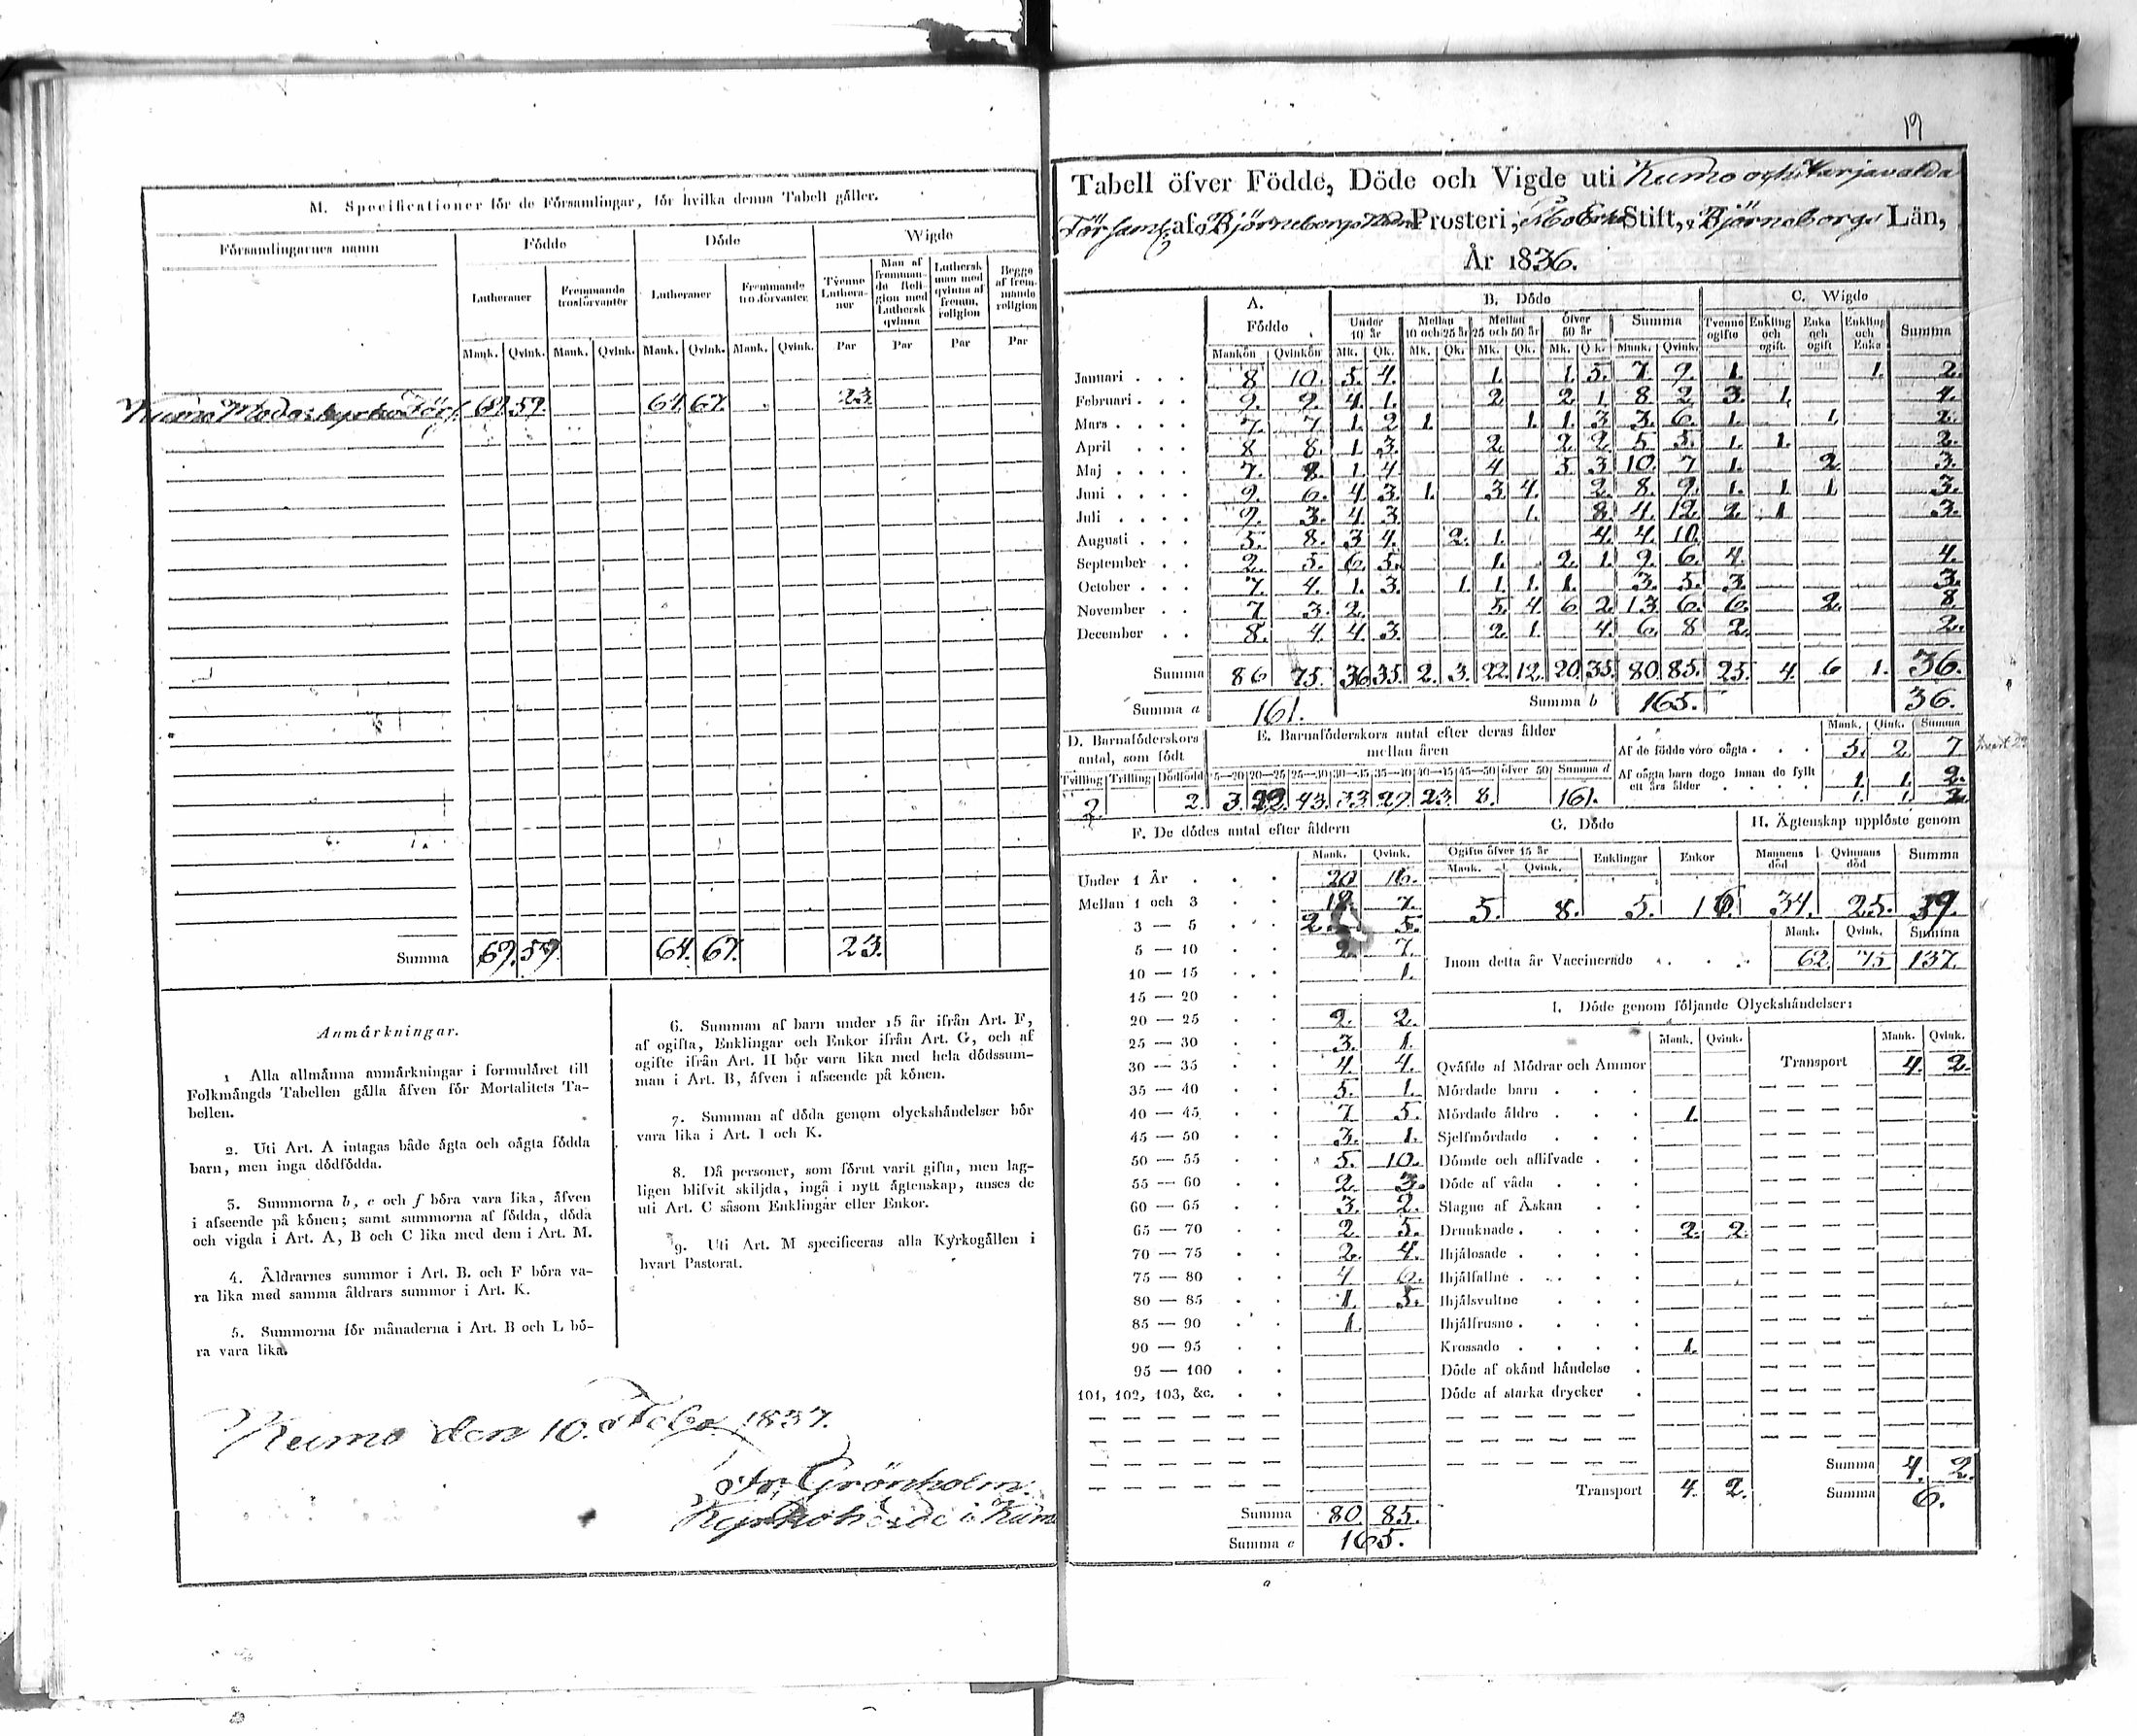 M. Specificationer för de Församlingar, för hvilka denna Tabell gäller.
Församlingarnes namn Födde Döde Wigde
Lutheraner Fremmande trosförvanter Lutheraner Fremmande trosförvanter Tvenne Lutheraner Man af fremmande Religion med Luthersk qvinna Luthersk man med qvinna af fremm. religion Begge af fremmande religion
Mank. Qvink. Mank. Qvink. Mank. Qvink. Mank. Qvink. Par Par Par Par
Kumo Moderkyrko Förs. 69. 59. 64. 67. 23
Summa 69. 59. 64. 67. 23.
Anmärkningar.
1 Alla allmänna anmärkningar i formuläret till
Folkmängds Tabellen gälla äfven för Mortalitets Ta-
bellen.
2. Uti Art. A intagas både ägta och oägta födda
barn, men inga dödfödda.
3. Summorna b, c och f böra vara lika, äfven
i afseende på könen; samt summorna af födda, döda
och vigda i Art. A, B och C lika med dem i Art. M.
4. Åldrarnes summor i Art. B. och F böra va-
ra lika med samma åldrars summor i Art. K.
5. Summorna för månaderna i Art. B och L bö-
ra vara lika.
6. Summan af barn under 15 år ifrån Art. F,
af ogifta, Enklingar och Enkor ifrån Art. G, och af
ogifte ifrån Art. H bör vara lika med hela dödssum-
man i Art. B, äfven i afseende på könen.
7. Summan af döda genom olyckshändelser bör
vara lika i Art. I och K.
8. Då personer, som förut varit gifta, men lag-
ligen blifvit skiljda, ingå i nytt ägtenskap, anses de
uti Art. C såsom Enklingar eller Enkor.
9. Uti Art. M specificeras alla Kyrkogällen i
hvart Pastorat.
Kumo den 10. Febr. 1837.
Fr. Grönholm.
Kyrkoherde i Kumo
19
Tabell öfver Födde, Döde och Vigde uti Kumo och Harjavalda
Församl. af Björneborgs Prosteri, Åbo Erke Stift, Björneborgs Län,
År 1836.
A. Födde B. Döde C. Wigde
Under 10 år Mellan 10 och 25 år Mellan 25 och 50 år öfver 50 år Summa Tvenne ogifte Enkling och ogift Enka och ogift Enkling och Enka Summa
Mankön Qvinkön Mk. Qk. Mk. Qk. Mk. Qk. Mk. Qk. Mank. Qvink.
Januari 8 10. 5. 4. 1. 1. 5. 7. 9. 1. 1. 2.
Februari 9. 9. 4. 1. 2 2. 1. 8 2 3. 1. 4.
Mars 7. 7 1. 2 1. 1. 1. 3 3. 6. 1. 1. 2.
April 8 8. 1. 3. 2. 2. 2. 5 5. 1. 1. 2.
Maj 7. 8. 1. 4. 4 5 3 10. 7 1. 2 3.
Juni 9. 6. 4. 3. 1. 3 4. 2. 8. 9. 1. 1. 1. 3.
Juli 9. 3. 4. 3. 1. 8. 4. 12. 2. 1 3.
Augusti 5. 8. 3 4. 2. 1. 4. 4. 10.
September 2. 5. 6. 5. 1. 2. 1. 9. 6. 4. 4.
October 7. 4. 1. 3. 1. 1. 1. 1. 3. 5. 3. 3.
November 7. 3. 2. 5. 4 6 2. 13. 6. 6. 2. 8.
December 8. 4. 4. 3. 2. 1. 4. 6. 8 2. 2.
Summa 86 75. 36. 35. 2. 3. 22. 12. 20. 35. 80. 85. 25. 4. 6 1. 36.
Summa a 161. Summa b 165. 36.
D. Barnaföderskors antal, som födt
Tvilling Trilling Dödfödd
2. 2.
E. Barnaföderskors antal efter deras ålder mellan åren
15—20 20—25 25—30 30—35 35—40 40—45 45—50 öfver 50 Summa d
3. 22. 43. 33. 29. 23. 8. 161.
Mank. Qink. Summa
Af de födde voro oägta 5. 2. 7
Af oägta barn dogo innan de fyllt ett års ålder 1. 1. 2.
1. 1. 2.
F. De dödes antal efter åldern
Mank. Qvink.
Under 1 År 20 16.
Mellan 1 och 3 12. 7.
3 — 5 2. 5.
5 — 10 2. 7.
10 — 15 1.
15 — 20
20 — 25 2. 2.
25 — 30 3. 1.
30 — 35 4. 4.
35 — 40 5. 1.
40 — 45 7 5.
45 — 50 3. 1.
50 — 55 5. 10.
55 — 60 2. 3.
60 — 65 3. 2.
65 — 70 2. 5.
70 — 75 2. 4.
75 — 80 4 6.
80 — 85 1. 5.
85 — 90 1.
90 — 95
95 — 100
101, 102, 103, &c.
Summa 80. 85.
Summa c 165.
G. Döde
Ogifte öfver 15 år Enklingar Enkor
Mank. Qvink.
5. 8. 5. 16.
H. Ägtenskap upplöste genom
Mannens död Qvinnans död Summa
34. 25. 59.
Mank. Qvink. Summa
Inom detta år Vaccinerade 62. 75 137.
I. Döde genom följande Olyckshändelser:
Mank. Qvink. Mank. Qvink.
Qväfde af Mödrar och Ammor Transport 4. 2.
Mördade barn
Mördade äldre 1.
Sjelfmördade
Dömde och aflifvade
Döde af våda
Slagne af Åskan
Drunknade 2. 2.
Ihjälosade
Ihjälfallne
Ihjälsvultne
Ihjälfrusne
Krossade 1.
Döde af okänd händelse
Döde af starka drycker
Summa 4. 2.
Transport 4. 2. Summa 6.